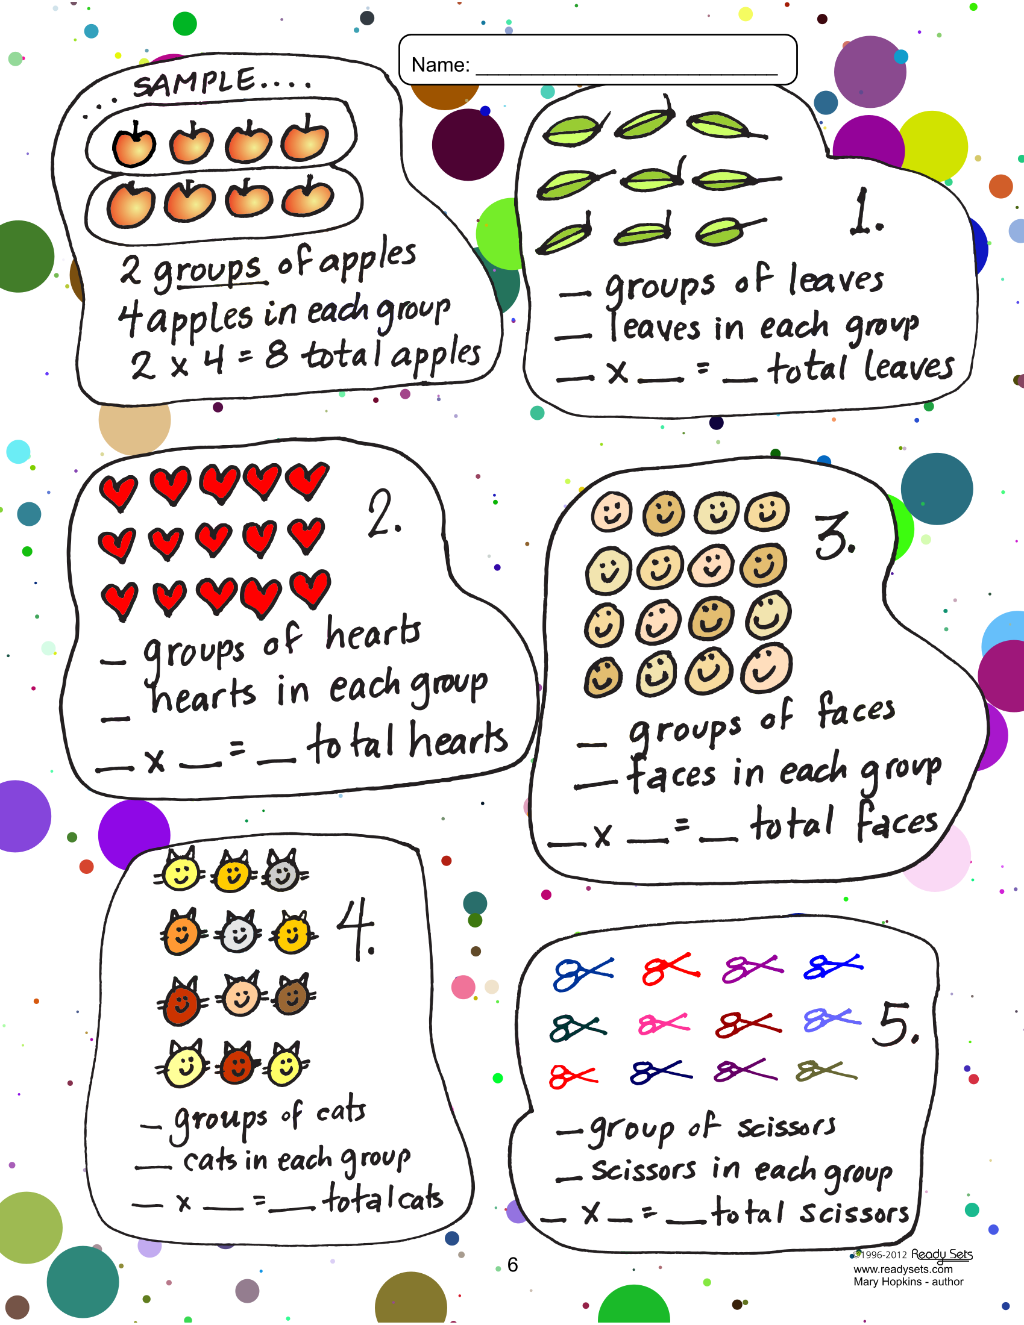 Name: ___________________________
SAMPLE....
2 groups of apples
4 apples in each group
2 x 4 = 8 total apples
1.
_ groups of leaves
_ leaves in each group
_ x _ = _ total leaves
2.
_ groups of hearts
_ hearts in each group
_ x _ = _ total hearts
3.
_ groups of faces
_ faces in each group
_ x _ = _ total faces
4.
_ groups of cats
_ cats in each group
_ x _ = _ total cats
5.
_ group of scissors
_ scissors in each group
_ x _ = _ total scissors
6
©1996-2012 Ready Sets
www.readysets.com
Mary Hopkins - author